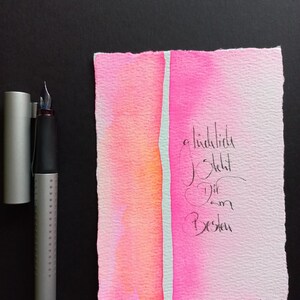 glücklich
steht
Dir
am
Besten